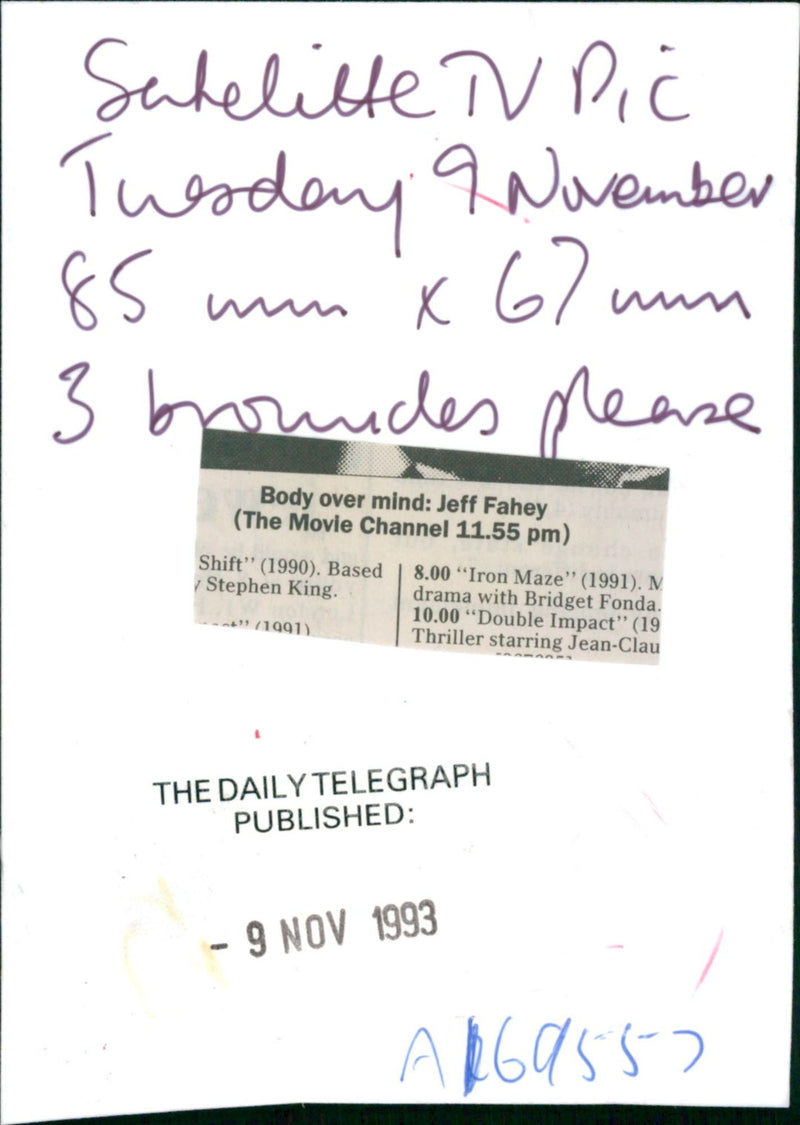 Satelitte TV Pic
Tuesday 9 November
85 mm x 67 mm
3 bromides please
Body over mind: Jeff Fahey
(The Movie Channel 11.55 pm)
Shift" (1990). Based
y Stephen King.
(1991)
8.00 "Iron Maze" (1991). M
drama with Bridget Fonda.
10.00 "Double Impact" (19
Thriller starring Jean-Clau
THE DAILY TELEGRAPH
PUBLISHED:
- 9 NOV 1993